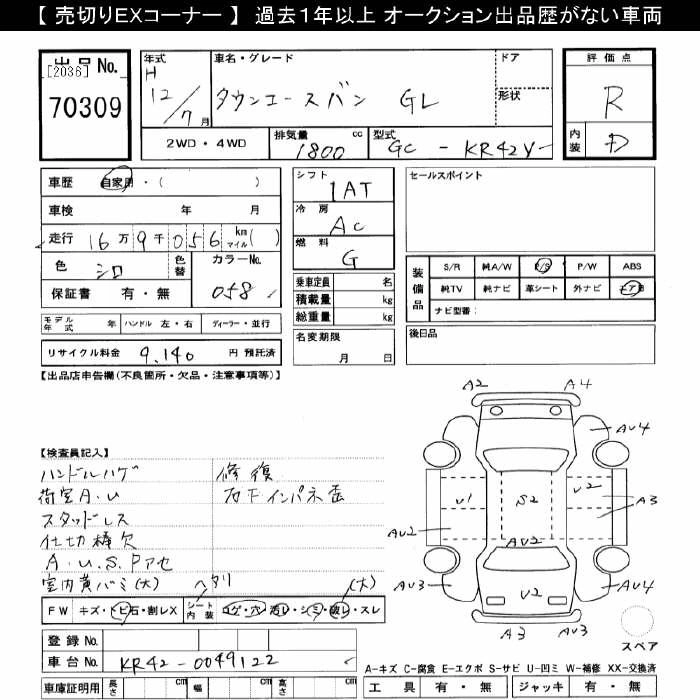 【 売切りEXコーナー 】 過去１年以上 オークション出品歴がない車両
出品 No.
[2036]
70309
年式
H
12/7月
車名・グレード
タウンエースバン GL
ドア
形状
評価点
R
内装
D
2WD・4WD
排気量
1800 cc
型式
GC - KR42V-
車歴 自家用・( )
車検 年 月
走行 16万9千056 km マイル( )
色 シロ
色替
カラーNo.
058
保証書 有・無
モデル年式 年 ハンドル 左・右 ディーラー・並行
リサイクル料金 9,140 円 預託済
シフト
1AT
冷房
AC
燃料
G
乗車定員 名
積載量 kg
総重量 kg
名変期限
月 日
セールスポイント
装備品
S/R 純A/W P/S P/W ABS
純TV 純ナビ 革シート 外ナビ エアB
ナビ型番:
後日品
【出品店申告欄(不良箇所・欠品・注意事項等)】
【検査員記入】
ハンドルハゲ 修復
荷室A.U 右下インパネ歪
スタッドレス
仕切棒欠
A.U.S.Pアセ
室内黄バミ(大) ヘタリ (大)
FW キズ・トビ石・割レX
シート内装 コゲ・穴・汚レ・シミ・破レ・スレ
登録 No.
車台 No. KR42-0049122
車庫証明用 長さ cm 幅 cm 高さ cm
A2 A4
AU4
U1 S2 U2
A3
AU2 AU2
AU3 U2 AU4
A3 AU3
スペア
A-キズ C-腐食 E-エクボ S-サビ U-凹ミ W-補修 XX-交換済
工具 有・無 ジャッキ 有・無